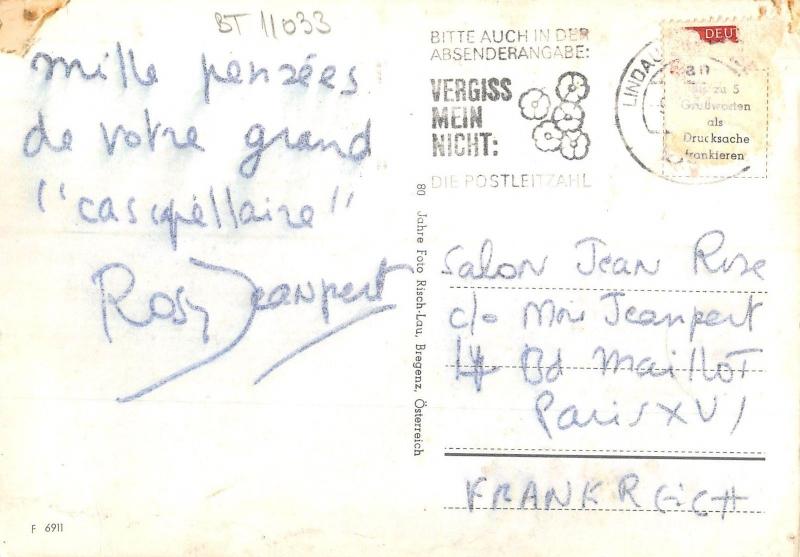 BT 11033
mille pensées
de votre grand
"cascapéllaire"
Rosy Jeanpert
BITTE AUCH IN DER
ABSENDERANGABE:
VERGISS
MEIN
NICHT:
DIE POSTLEITZAHL
LINDAU
DEUT
an
bis zu 5
Grußworten
als
Drucksache
frankieren
80 Jahre Foto Risch-Lau, Bregenz, Österreich
Salon Jean Rose
c/o Jeanpert
Bd Maillot
Paris XVI
FRANKREICH
F 6911